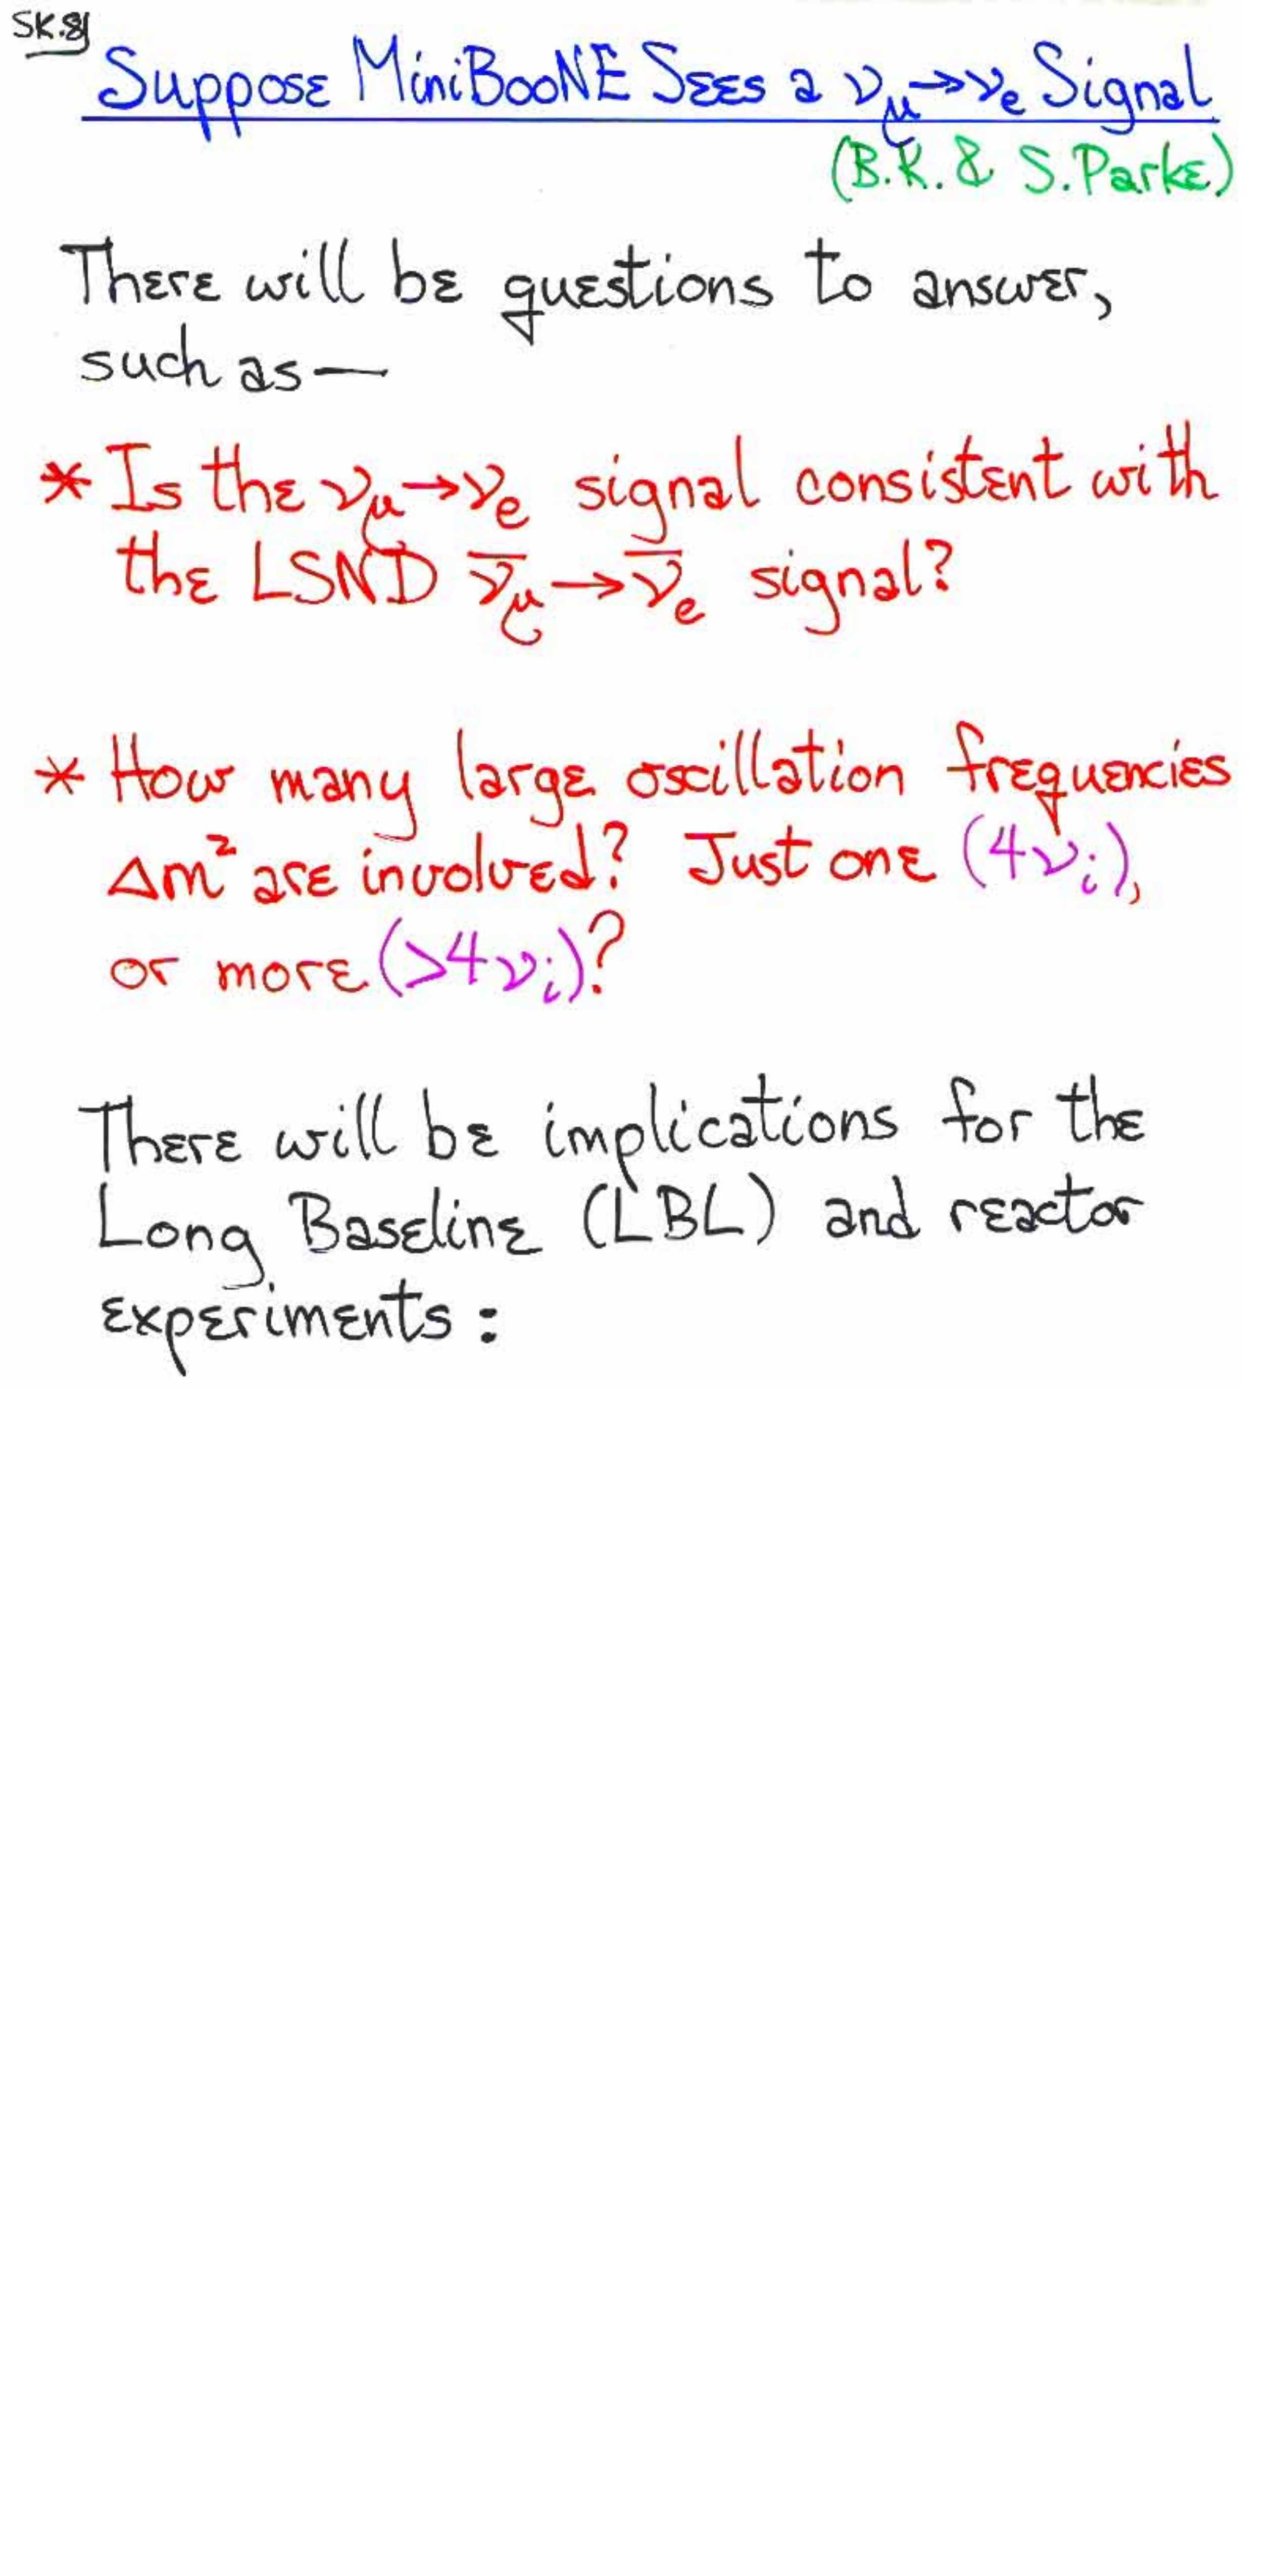 SK.8
Suppose MiniBooNE Sees a νμ→νe Signal
(B.K. & S. Parke)
There will be questions to answer,
such as—
* Is the νμ→νe signal consistent with
the LSND ν̄μ→ν̄e signal?
* How many large oscillation frequencies
Δm² are involved? Just one (4νi),
or more (>4νi)?
There will be implications for the
Long Baseline (LBL) and reactor
experiments: